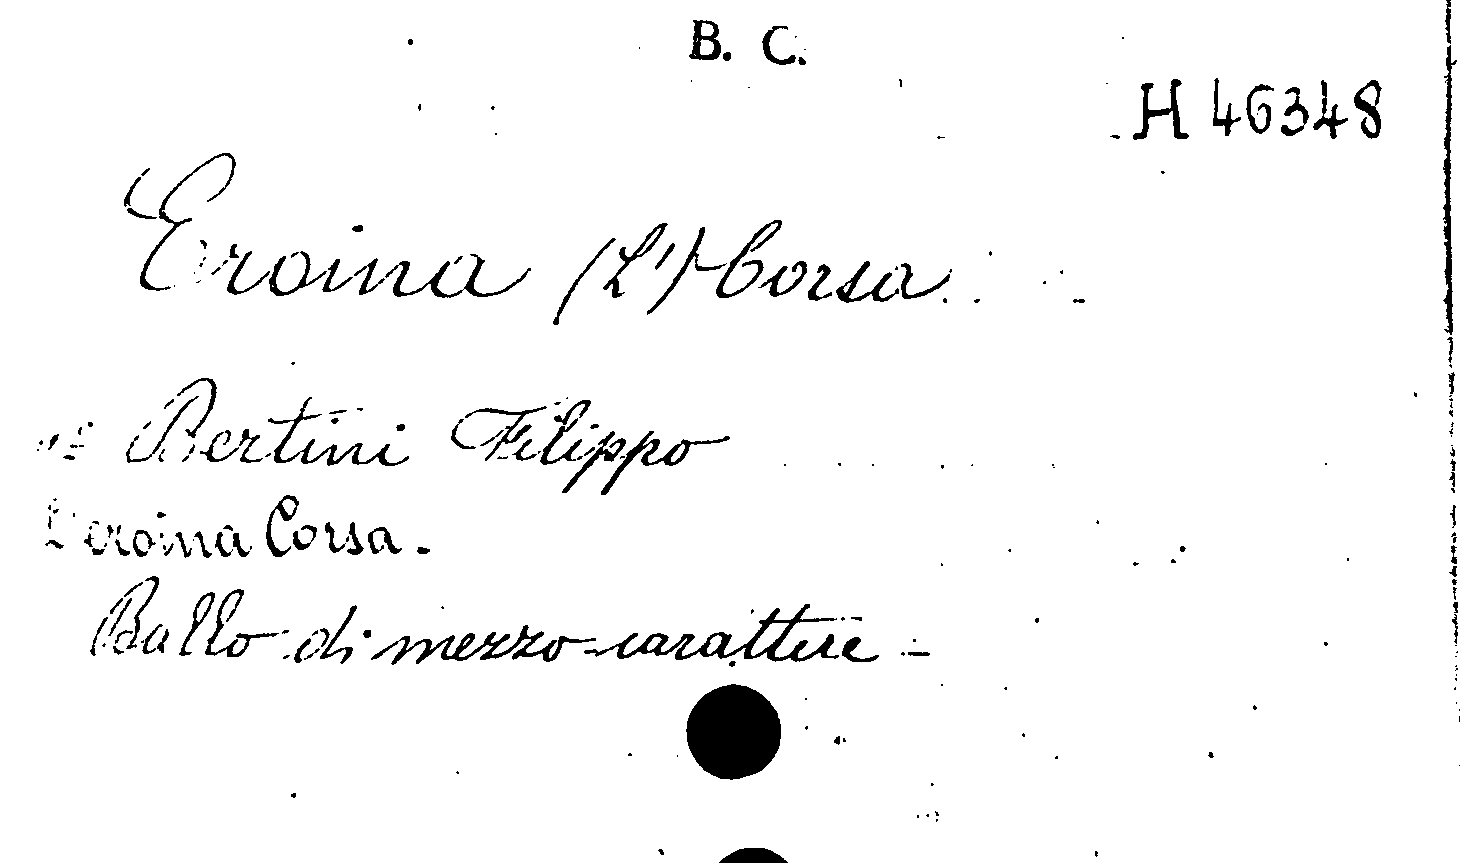 B. C.
H 46348
Eroina (L') Corsa.
Bertini Filippo
L'eroina Corsa.
Ballo di mezzo-carattere -